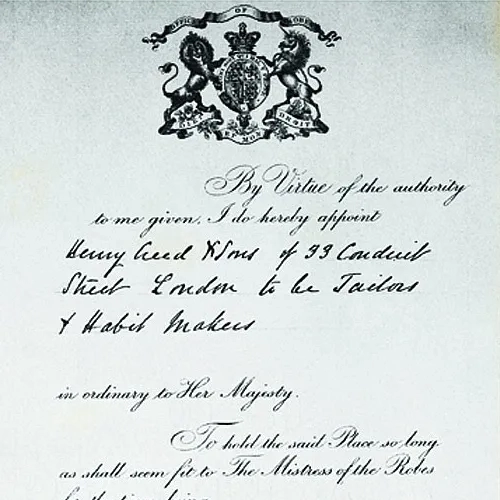 OFFICE OF ROBES
DIEU ET MON DROIT
By Virtue of the authority
to me given, I do hereby appoint
Henry Creed & Sons of 33 Conduit
Street London to be Tailors
& Habit Makers
in ordinary to Her Majesty.
To hold the said Place so long
as shall seem fit to The Mistress of the Robes
for the time being